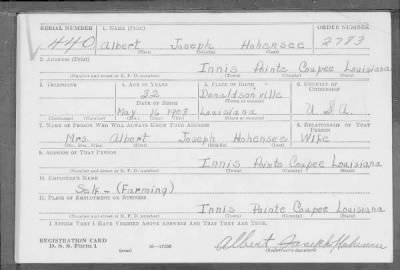 SERIAL NUMBER 1. NAME (Print) ORDER NUMBER
440 Albert Joseph Hohensee 2783
(First) (Middle) (Last)
2. ADDRESS (Print)
Innis Pointe Coupee Louisiana
(Number and street or R. F. D. number) (Town) (County) (State)
3. TELEPHONE 4. AGE IN YEARS 5. PLACE OF BIRTH 6. COUNTRY OF CITIZENSHIP
32 Donaldsonville
DATE OF BIRTH (Town or county)
May 16 1908 Louisiana U S A.
(Exchange) (Number) (Mo.) (Day) (Yr.) (State or country)
7. NAME OF PERSON WHO WILL ALWAYS KNOW YOUR ADDRESS 8. RELATIONSHIP OF THAT PERSON
Mrs. Albert Joseph Hohensee Wife
(Mr., Mrs., Miss) (First) (Middle) (Last)
9. ADDRESS OF THAT PERSON
Innis Pointe Coupee Louisiana
(Number and street or R. F. D. number) (Town) (County) (State)
10. EMPLOYER'S NAME
Self - (Farming)
11. PLACE OF EMPLOYMENT OR BUSINESS
Innis Pointe Coupee Louisiana
(Number and street or R. F. D. number) (Town) (County) (State)
I AFFIRM THAT I HAVE VERIFIED ABOVE ANSWERS AND THAT THEY ARE TRUE.
REGISTRATION CARD
D. S. S. FORM 1 (over) Albert Joseph Hohensee
(Registrant's signature)